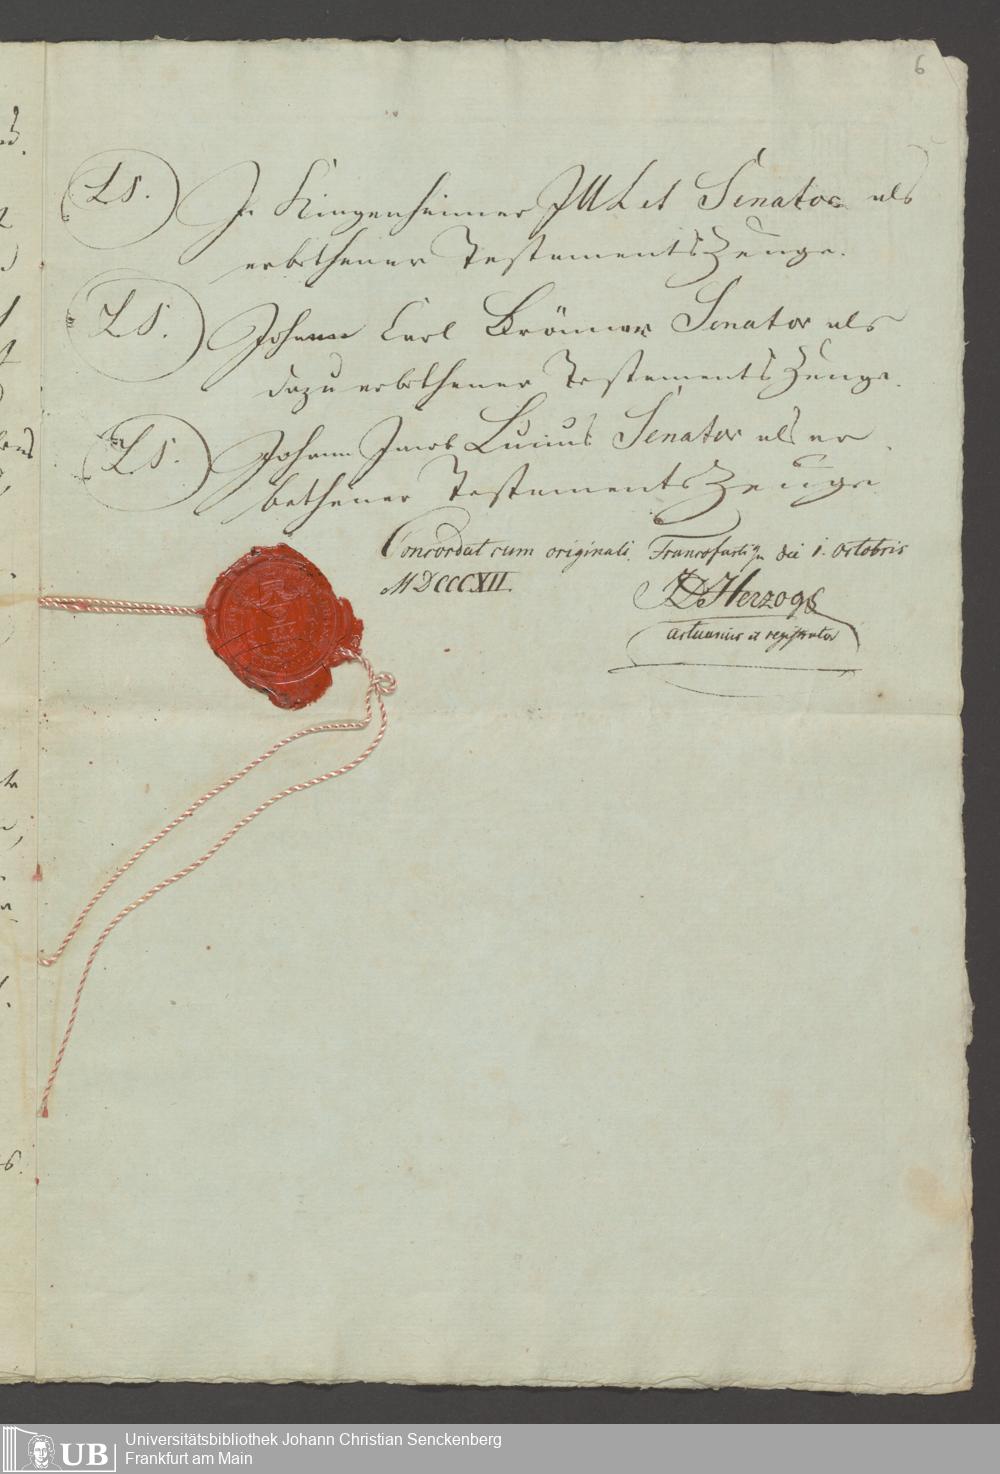 6
LS. J. Klingenheimer JUL et Senator als
erbethener Testaments Zeuge.
LS. Johann Carl Brönner Senator als
dazu erbethener Testaments Zeuge.
LS. Johann Jacob Lucius Senator als er
bethener Testaments Zeuge
Concordat cum originali. Francofurti die 1. Octobris
MDCCCXII.
Herzog
actuarius et registrator
UB
Universitätsbibliothek Johann Christian Senckenberg
Frankfurt am Main